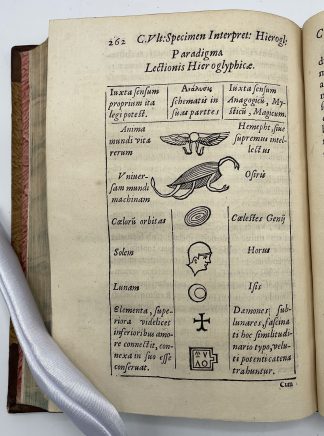 262 C.Vlt: Specimen Interpret: Hierogl:
Paradigma
Lectionis Hieroglyphicæ.
Iuxta sensum
proprium ita
legi potest.
Ανάλυσις
schematis in
suas partes
Iuxta sensum
Anagogicū, My-
sticū, Magicum.
Anima
mundi vita
rerum
Hemepht, siue
supremus intel-
lectus
Vniuer-
sam mundi
machinam
Osiris
Cœlorū orbitas
Cœlestes Genij
Solem
Horus
Lunam
Isis
Elementa, supe-
riora videlicet
inferioribus amo-
re connectit, con-
nexa in suo esse
conseruat.
Dæmones sub-
lunares, fascina
ti hoc similitudi-
nario typo, velu-
ti potenti catena
trahuntur.
Cum